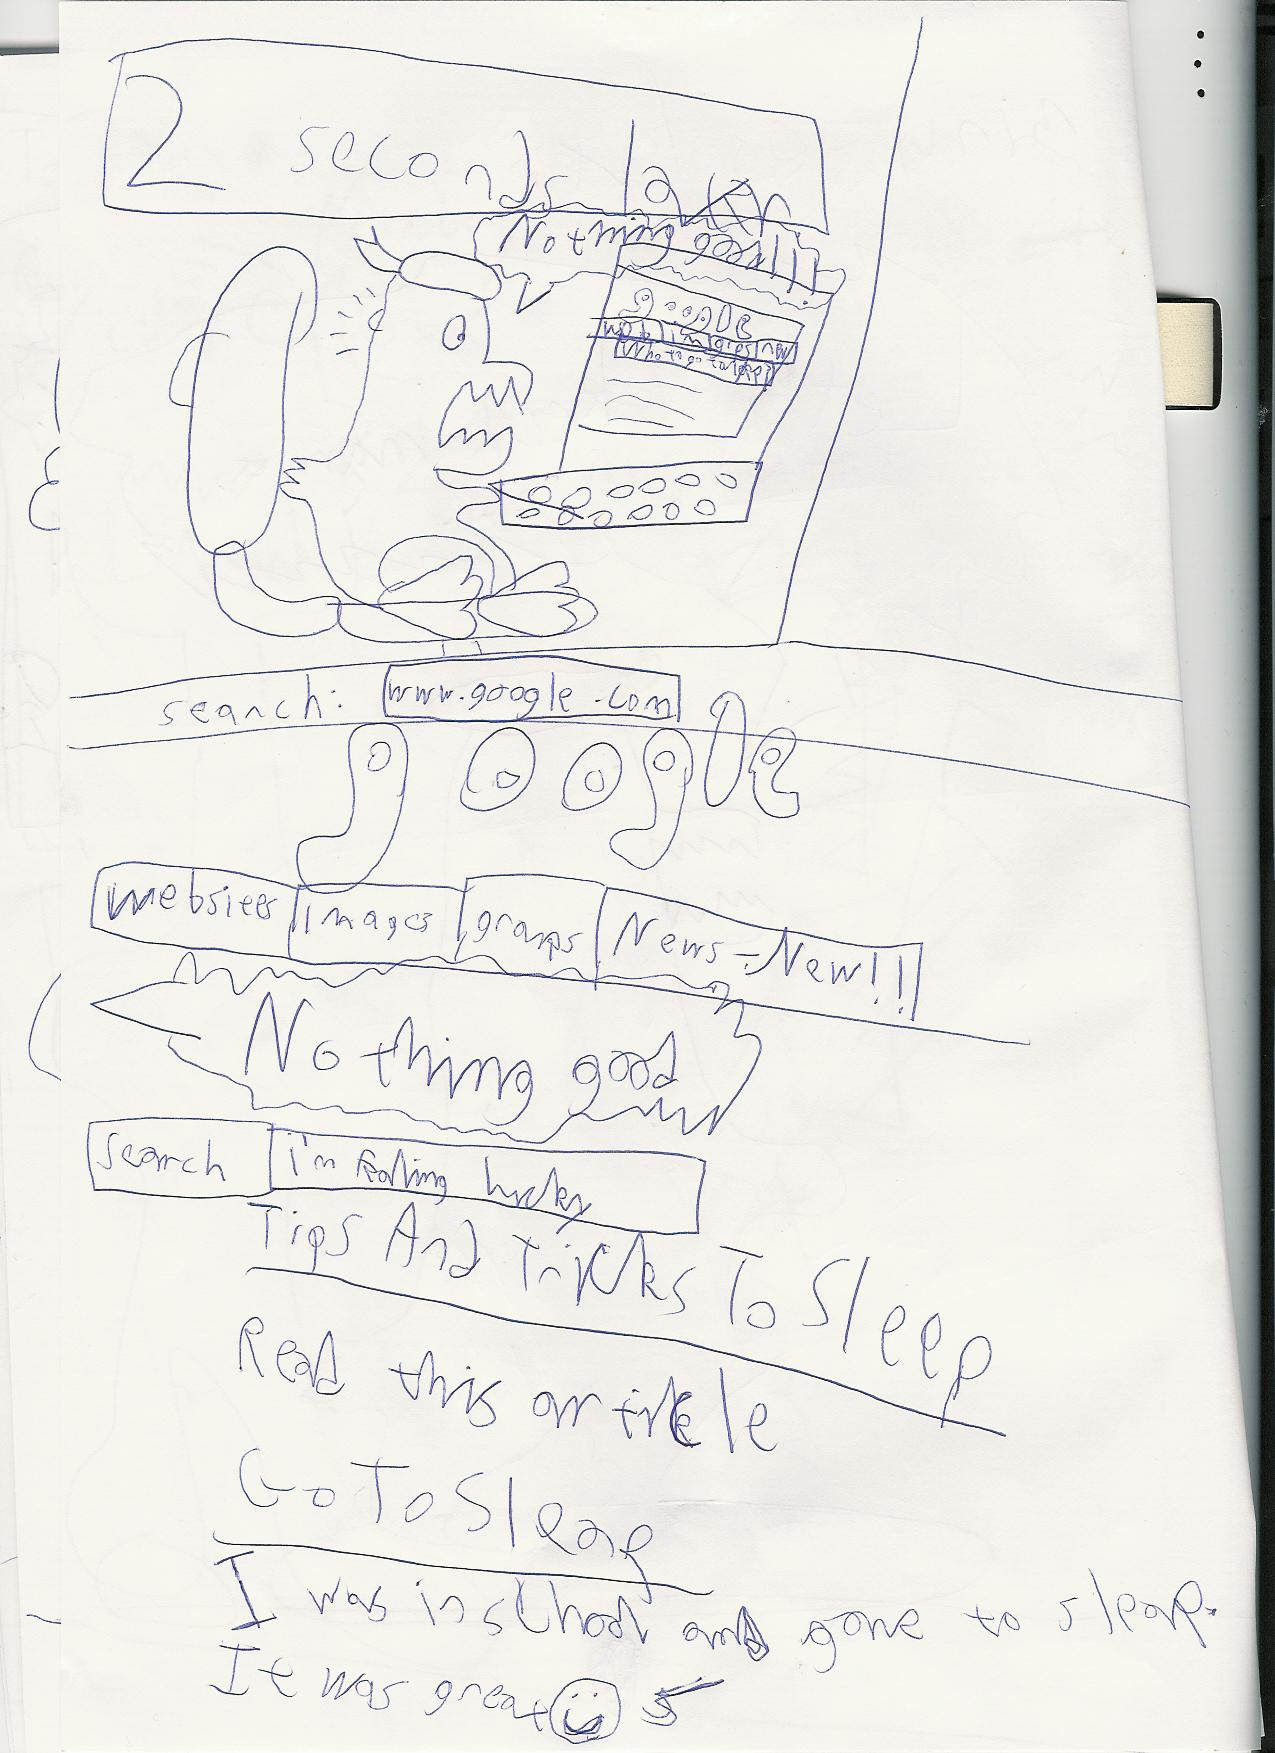 2 seconds later
Nothing good!!!
google
search: www.google.com
google
websites images groups News-New!!
Nothing good
search i'm fealing lucky
Tips And Tricks To Sleep
Read this artickle
Go To Sleap
I was in school and gone to sleap.
It was great